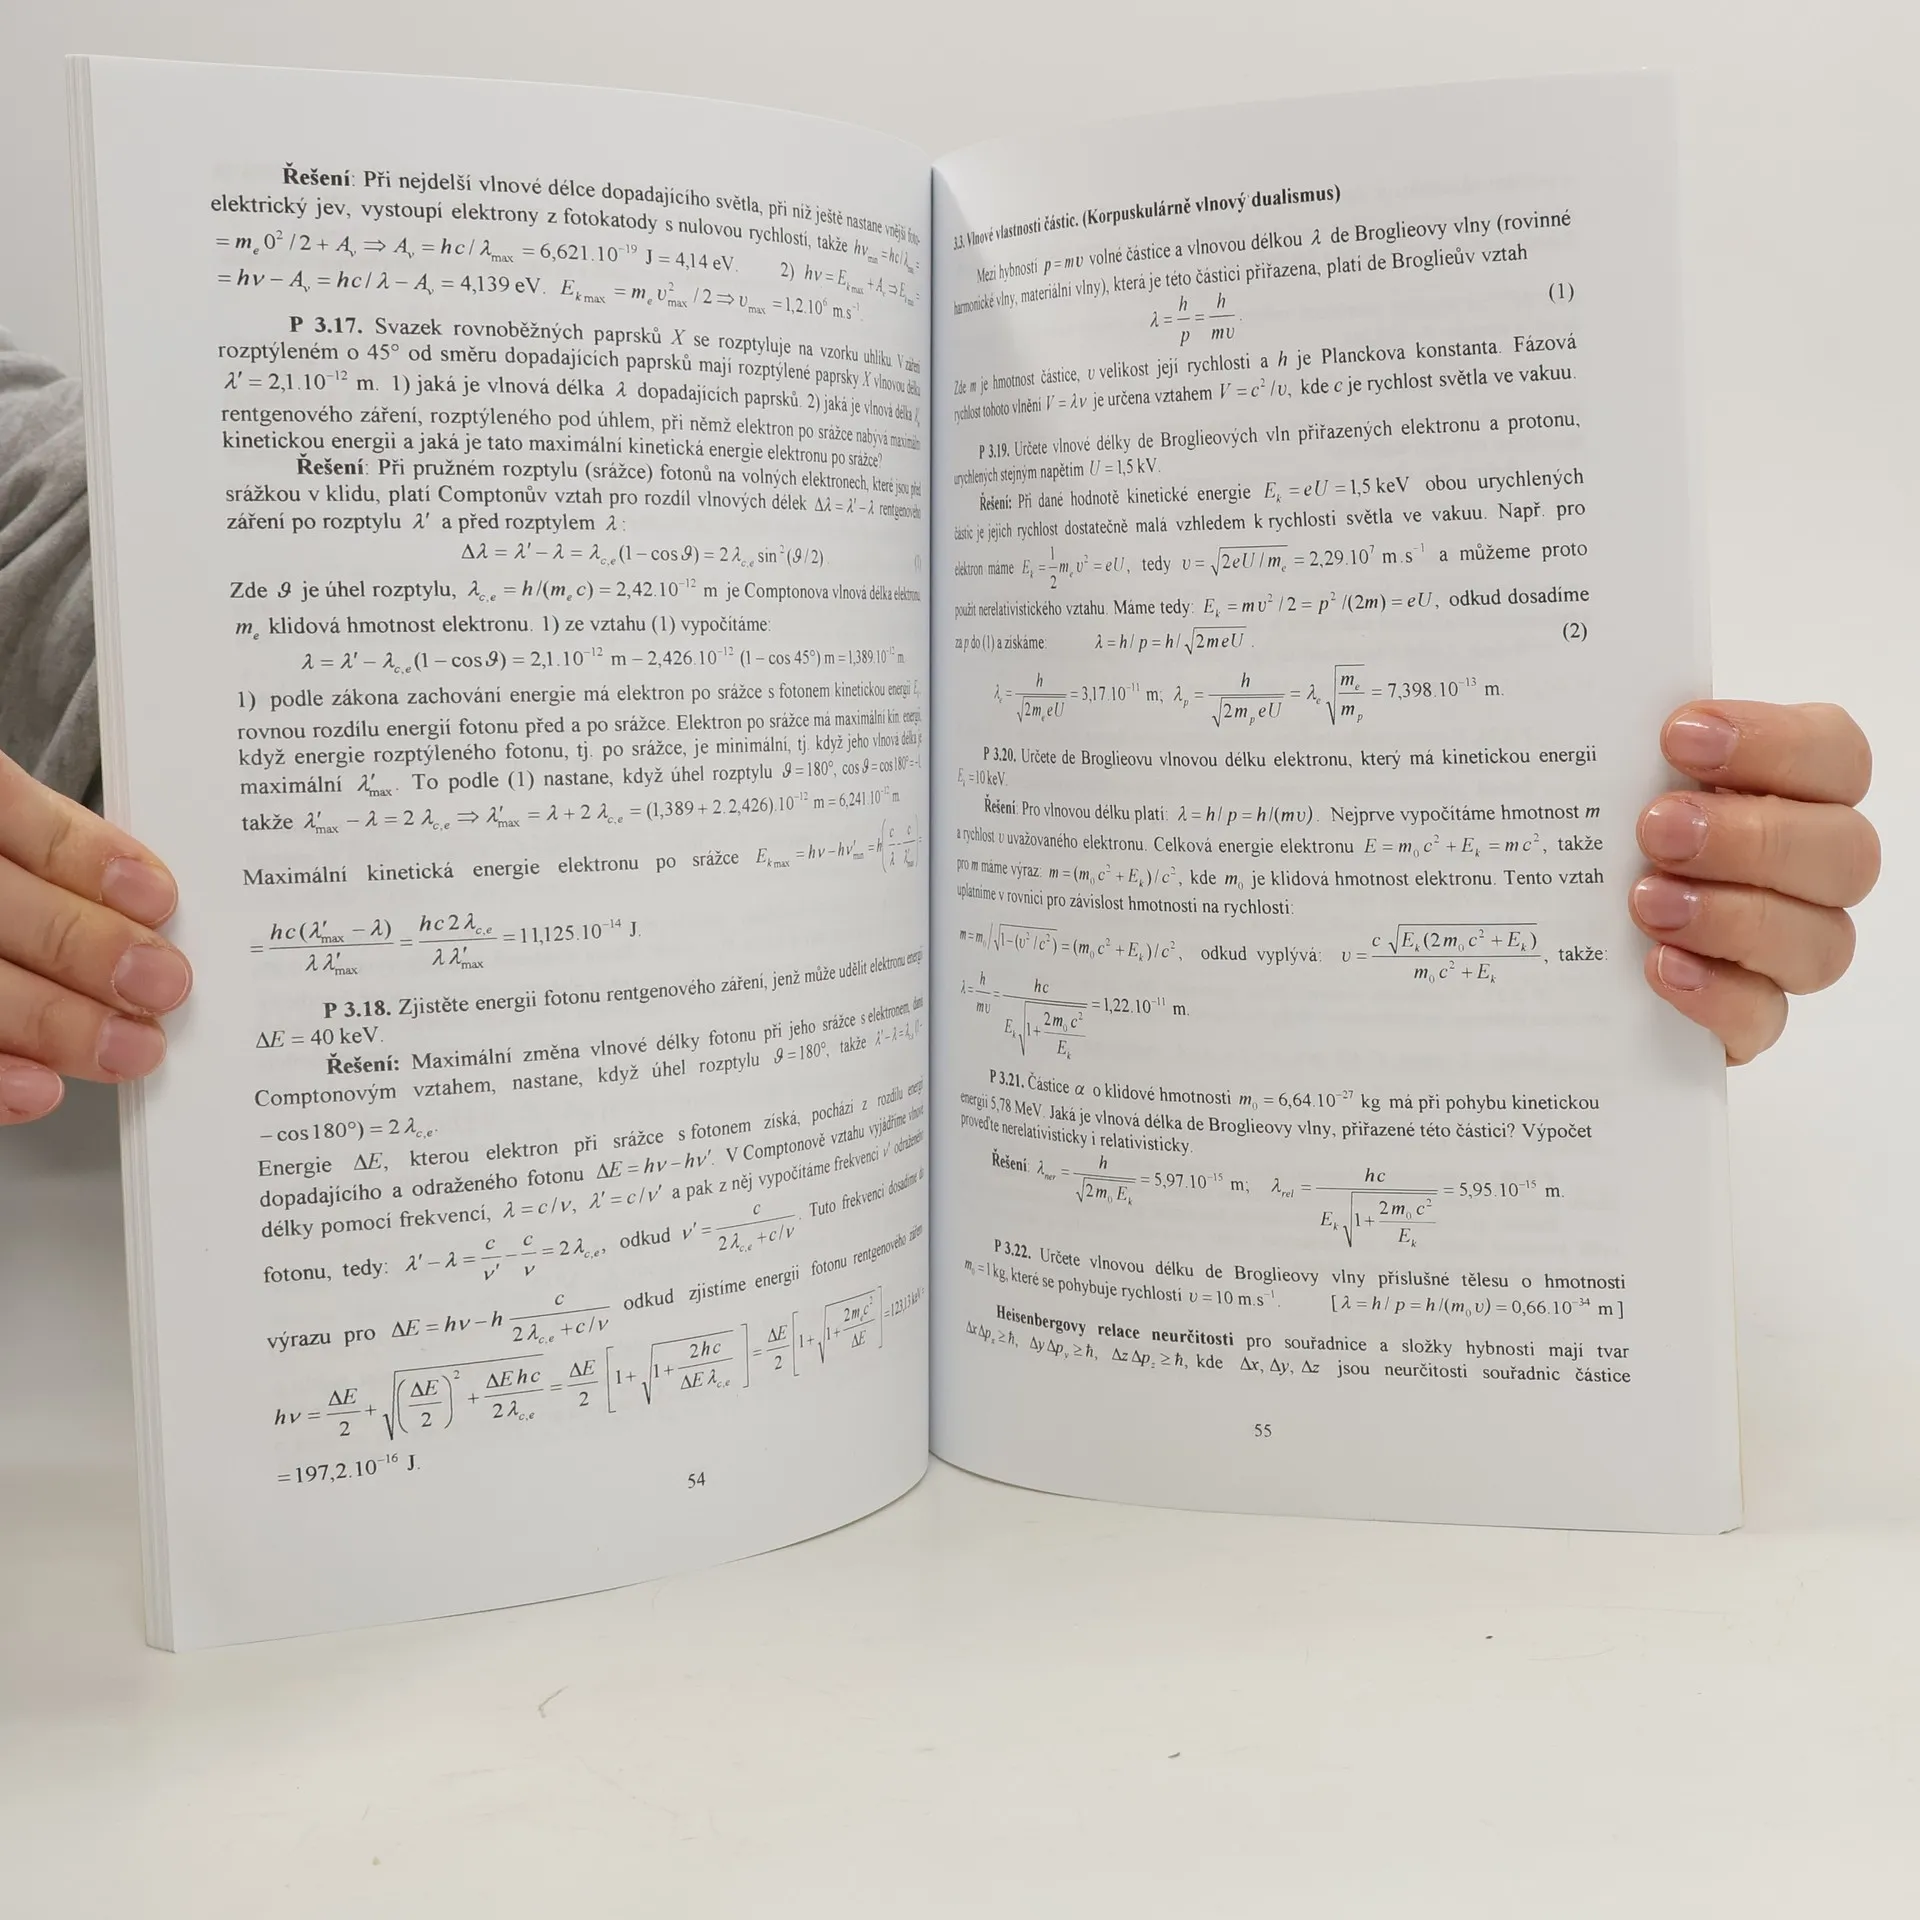 Řešení: Při nejdelší vlnové délce dopadajícího světla, při níž ještě nastane vnější foto-
elektrický jev, vystoupí elektrony z fotokatody s nulovou rychlostí, takže hν_min = hc/λ_max =
= m_e 0² / 2 + A_v ⇒ A_v = hc / λ_max = 6,621.10⁻¹⁹ J = 4,14 eV. 2) hν = E_k max + A_v ⇒ E_k max =
= hν − A_v = hc / λ − A_v = 4,139 eV. E_k max = m_e υ²_max / 2 ⇒ υ_max = 1,2.10⁶ m.s⁻¹.
P 3.17. Svazek rovnoběžných paprsků X se rozptyluje na vzorku uhlíku. V záření
rozptýleném o 45° od směru dopadajících paprsků mají rozptýlené paprsky X vlnovou délku
λ′ = 2,1.10⁻¹² m. 1) jaká je vlnová délka λ dopadajících paprsků. 2) jaká je vlnová délka
rentgenového záření, rozptýleného pod úhlem, při němž elektron po srážce nabývá maximální
kinetickou energii a jaká je tato maximální kinetická energie elektronu po srážce?
Řešení: Při pružném rozptylu (srážce) fotonů na volných elektronech, které jsou před
srážkou v klidu, platí Comptonův vztah pro rozdíl vlnových délek Δλ = λ′ − λ rentgenového
záření po rozptylu λ′ a před rozptylem λ :
Δλ = λ′ − λ = λ_c,e (1 − cos ϑ) = 2 λ_c,e sin² (ϑ/2). (1)
Zde ϑ je úhel rozptylu, λ_c,e = h/(m_e c) = 2,42.10⁻¹² m je Comptonova vlnová délka elektronu,
m_e klidová hmotnost elektronu. 1) ze vztahu (1) vypočítáme:
λ = λ′ − λ_c,e (1 − cos ϑ) = 2,1.10⁻¹² m − 2,426.10⁻¹² (1 − cos 45°) m = 1,389.10⁻¹² m.
1) podle zákona zachování energie má elektron po srážce s fotonem kinetickou energii E_k,
rovnou rozdílu energií fotonu před a po srážce. Elektron po srážce má maximální kin. energii,
když energie rozptýleného fotonu, tj. po srážce, je minimální, tj. když jeho vlnová délka je
maximální λ′_max. To podle (1) nastane, když úhel rozptylu ϑ = 180°, cos ϑ = cos 180° = −1,
takže λ′_max − λ = 2 λ_c,e ⇒ λ′_max = λ + 2 λ_c,e = (1,389 + 2.2,426).10⁻¹² m = 6,241.10⁻¹² m.
Maximální kinetická energie elektronu po srážce E_k max = hν − hν′_min = h(c/λ − c/λ′_max) =
= hc(λ′_max − λ)/(λ λ′_max) = hc 2 λ_c,e/(λ λ′_max) = 11,125.10⁻¹⁴ J.
P 3.18. Zjistěte energii fotonu rentgenového záření, jenž může udělit elektronu energii
ΔE = 40 keV.
Řešení: Maximální změna vlnové délky fotonu při jeho srážce s elektronem, daná
Comptonovým vztahem, nastane, když úhel rozptylu ϑ = 180°, takže λ′ − λ = λ_c,e (1 −
− cos 180°) = 2 λ_c,e.
Energie ΔE, kterou elektron při srážce s fotonem získá, pochází z rozdílu energií
dopadajícího a odraženého fotonu ΔE = hν − hν′. V Comptonově vztahu vyjádříme vlnové
délky pomocí frekvencí, λ = c/ν, λ′ = c/ν′ a pak z něj vypočítáme frekvenci ν′ odraženého
fotonu, tedy: λ′ − λ = c/ν′ − c/ν = 2 λ_c,e, odkud ν′ = c/(2 λ_c,e + c/ν). Tuto frekvenci dosadíme do
výrazu pro ΔE = hν − h c/(2 λ_c,e + c/ν) odkud zjistíme energii fotonu rentgenového záření
hν = ΔE/2 + √((ΔE/2)² + ΔE hc/(2 λ_c,e)) = ΔE/2 [1 + √(1 + 2hc/(ΔE λ_c,e))] = ΔE/2 [1 + √(1 + 2m_e c²/ΔE)] = 123,13 keV =
= 197,2.10⁻¹⁶ J.
54
3.3. Vlnové vlastnosti částic. (Korpuskulárně vlnový dualismus)
Mezi hybností p = mυ volné částice a vlnovou délkou λ de Broglieovy vlny (rovinné
harmonické vlny, materiální vlny), která je této částici přiřazena, platí de Broglieův vztah
λ = h/p = h/(mυ). (1)
Zde m je hmotnost částice, υ velikost její rychlosti a h je Planckova konstanta. Fázová
rychlost tohoto vlnění V = λν je určena vztahem V = c² /υ, kde c je rychlost světla ve vakuu.
P 3.19. Určete vlnové délky de Broglieových vln přiřazených elektronu a protonu,
urychlených stejným napětím U = 1,5 kV.
Řešení: Při dané hodnotě kinetické energie E_k = eU = 1,5 keV obou urychlených
částic je jejich rychlost dostatečně malá vzhledem k rychlosti světla ve vakuu. Např. pro
elektron máme E_k = 1/2 m_e υ² = eU, tedy υ = √(2eU / m_e) = 2,29.10⁷ m.s⁻¹ a můžeme proto
použít nerelativistického vztahu. Máme tedy: E_k = mυ² / 2 = p² /(2m) = eU, odkud dosadíme
za p do (1) a získáme: λ = h/ p = h/ √(2meU). (2)
λ_e = h/√(2m_e eU) = 3,17.10⁻¹¹ m; λ_p = h/√(2m_p eU) = λ_e √(m_e/m_p) = 7,398.10⁻¹³ m.
P 3.20. Určete de Broglieovu vlnovou délku elektronu, který má kinetickou energii
E_k = 10 keV.
Řešení: Pro vlnovou délku platí: λ = h/ p = h/(mυ). Nejprve vypočítáme hmotnost m
a rychlost υ uvažovaného elektronu. Celková energie elektronu E = m₀ c² + E_k = mc², takže
pro m máme výraz: m = (m₀ c² + E_k)/c², kde m₀ je klidová hmotnost elektronu. Tento vztah
uplatníme v rovnici pro závislost hmotnosti na rychlosti:
m = m₀ / √(1−(υ² / c²)) = (m₀ c² + E_k)/c², odkud vyplývá: υ = c √(E_k (2m₀ c² + E_k))/(m₀ c² + E_k), takže:
λ = h/(mυ) = hc/(E_k √(1 + 2m₀ c²/E_k)) = 1,22.10⁻¹¹ m.
P 3.21. Částice α o klidové hmotnosti m₀ = 6,64.10⁻²⁷ kg má při pohybu kinetickou
energii 5,78 MeV. Jaká je vlnová délka de Broglieovy vlny, přiřazené této částici? Výpočet
proveďte nerelativisticky i relativisticky.
Řešení: λ_ner = h/√(2m₀ E_k) = 5,97.10⁻¹⁵ m; λ_rel = hc/(E_k √(1 + 2m₀ c²/E_k)) = 5,95.10⁻¹⁵ m.
P 3.22. Určete vlnovou délku de Broglieovy vlny příslušné tělesu o hmotnosti
m₀ = 1 kg, které se pohybuje rychlostí υ = 10 m.s⁻¹. [ λ = h/ p = h/(m₀ υ) = 0,66.10⁻³⁴ m ]
Heisenbergovy relace neurčitosti pro souřadnice a složky hybnosti mají tvar
Δx Δp_x ≥ ℏ, Δy Δp_y ≥ ℏ, Δz Δp_z ≥ ℏ, kde Δx, Δy, Δz jsou neurčitosti souřadnic částice
55